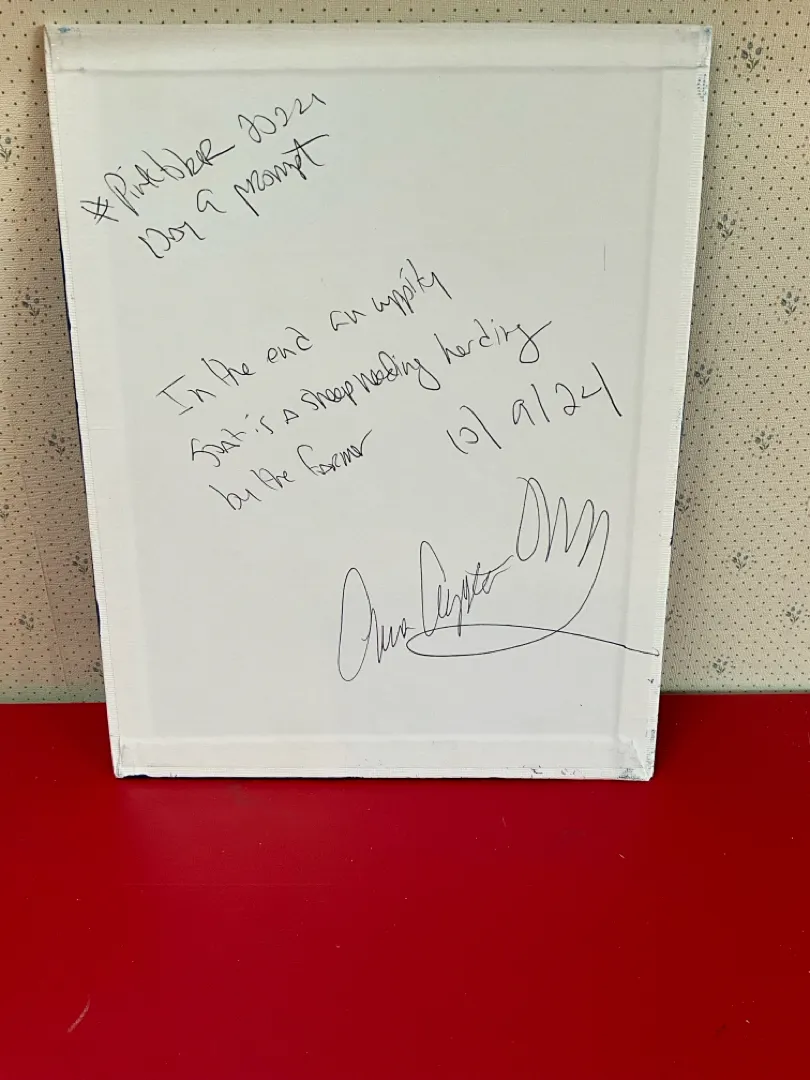 #Pinktober 2024
Day 9 prompt
In the end an uppity
goat is a sheep needing herding
by the farmer
10/9/24